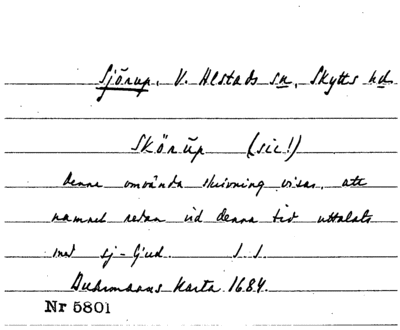 Sjörup. V. Alstads sn, Skytts hd
Skörup (sic!)
Denna omvända skrivning visar, att
namnet redan vid denna tid uttalats
med sj-ljud.
Buhrmanns karta 1684.
Nr 5801